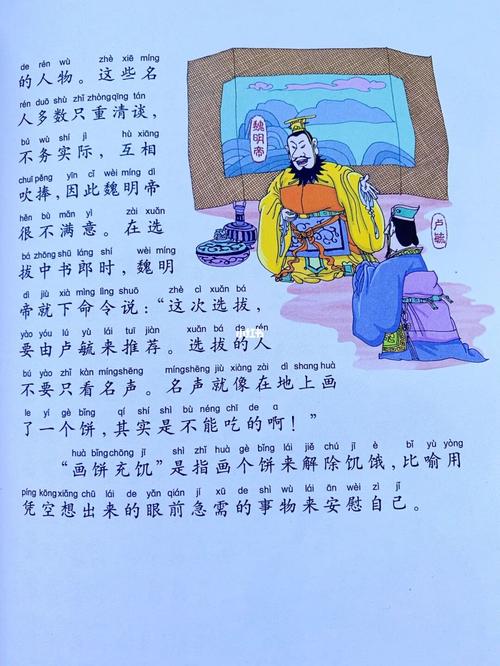 de rén wù zhè xiē míng
的人物。这些名
rén duō shù zhǐ zhòng qīng tán
人多数只重清谈，
bú wù shí jì hù xiāng
不务实际，互相
chuī pěng yīn cǐ wèi míng dì
吹捧，因此魏明帝
hěn bù mǎn yì zài xuǎn
很不满意。在选
bá zhōng shū láng shí wèi míng
拔中书郎时，魏明
dì jiù xià mìng lìng shuō zhè cì xuǎn bá
帝就下命令说：“这次选拔，
yào yóu lú yù lái tuī jiàn xuǎn bá de rén
要由卢毓来推荐。选拔的人
bú yào zhǐ kàn míng shēng míng shēng jiù xiàng zài dì shang huà
不要只看名声。名声就像在地上画
le yí gè bǐng qí shí shì bù néng chī de a
了一个饼，其实是不能吃的啊！”
huà bǐng chōng jī shì zhǐ huà gè bǐng lái jiě chú jī è bǐ yù yòng
“画饼充饥”是指画个饼来解除饥饿，比喻用
píng kōng xiǎng chū lái de yǎn qián jí xū de shì wù lái ān wèi zì jǐ
凭空想出来的眼前急需的事物来安慰自己。
魏明帝
卢毓